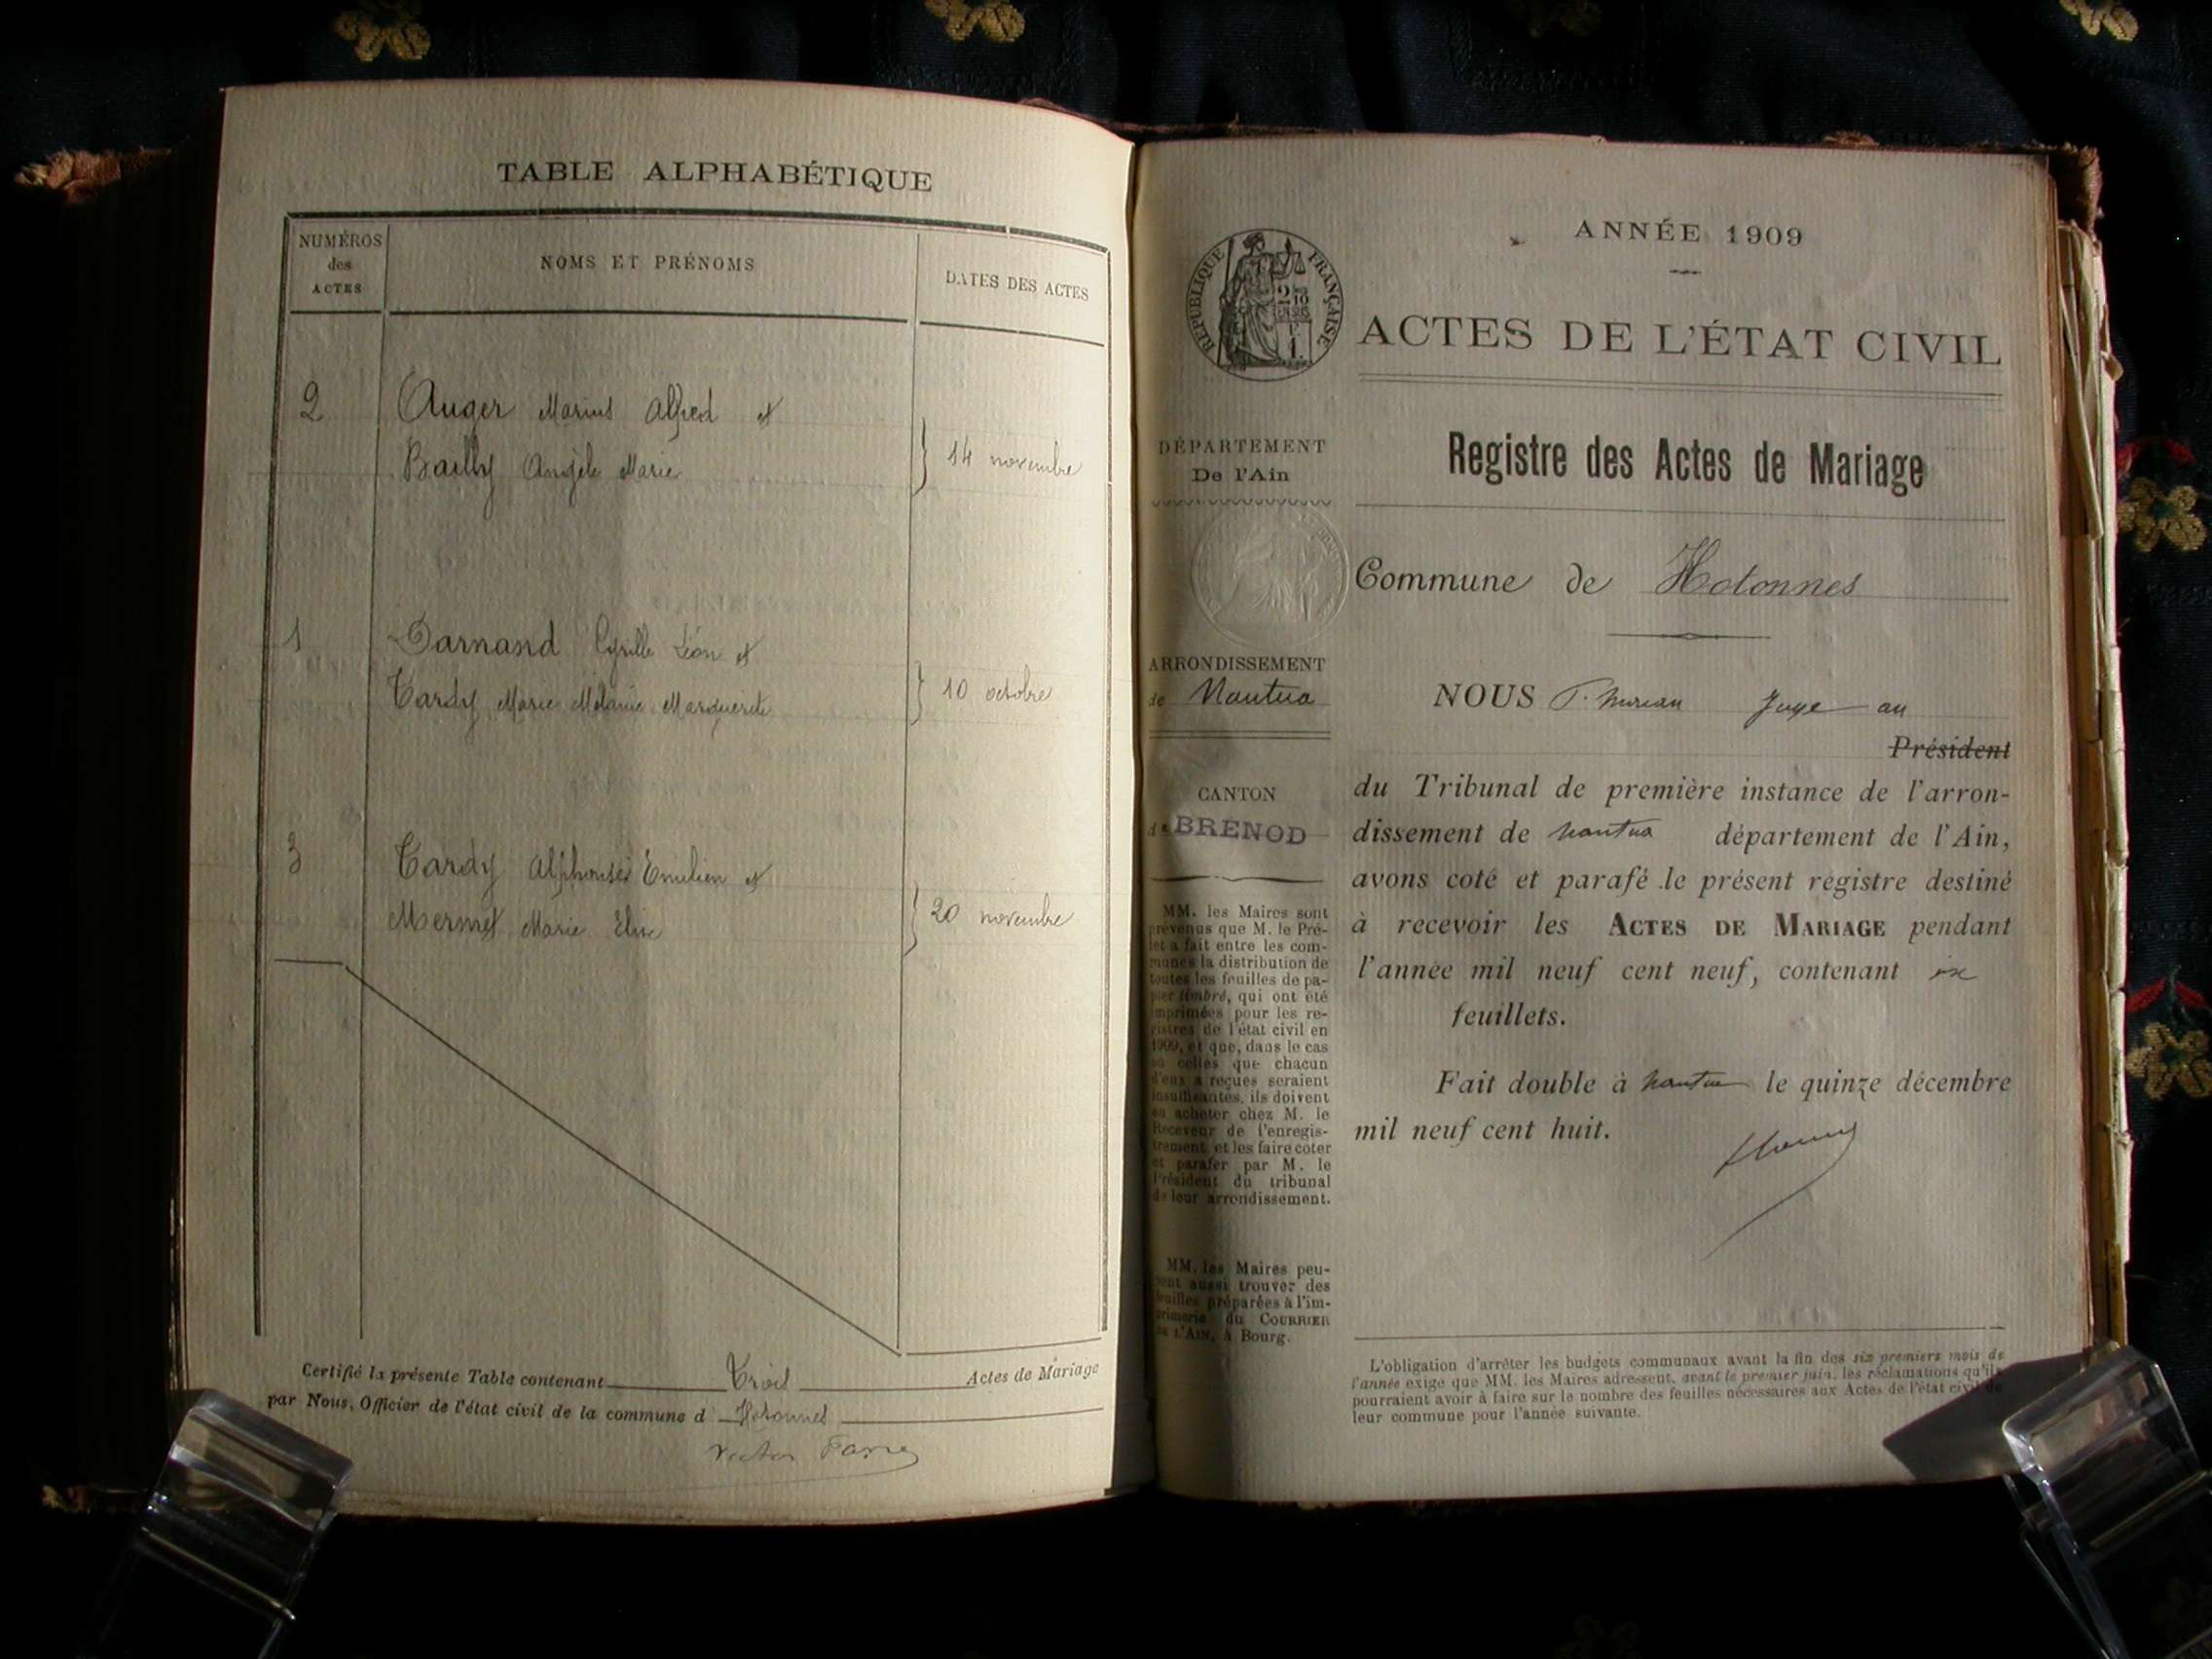 TABLE ALPHABÉTIQUE
NUMÉROS
des
ACTES
NOMS ET PRÉNOMS
DATES DES ACTES
2 Auger Marius Alfred et
Bailly Angèle Marie
14 novembre
1 Darnand Cyrille Léon et
Tardy Marie Mélanie Marguerite
10 octobre
3 Tardy Alphonse Emilien et
Mermet Marie Elise
20 novembre
Certifié la présente Table contenant Trois Actes de Mariage
par Nous, Officier de l'état civil de la commune d' Hotonnes
Victor
ANNÉE 1909
RÉPUBLIQUE FRANÇAISE
ACTES DE L'ÉTAT CIVIL
DÉPARTEMENT
De l'Ain
Registre des Actes de Mariage
Commune de Hotonnes
ARRONDISSEMENT
de Nantua
NOUS Juge au
Président
CANTON
de BRENOD
du Tribunal de première instance de l'arron-
dissement de Nantua département de l'Ain,
avons coté et parafé le présent registre destiné
à recevoir les ACTES DE MARIAGE pendant
l'année mil neuf cent neuf, contenant
feuillets.
Fait double à Nantua le quinze décembre
mil neuf cent huit.
MM. les Maires sont
prévenus que M. le Pré-
fet a fait entre les com-
munes la distribution de
toutes les feuilles de pa-
pier timbré, qui ont été
imprimées pour les re-
gistres de l'état civil en
1909, et que, dans le cas
où celles que chacun
d'eux a reçues seraient
insuffisantes, ils doivent
en acheter chez M. le
Receveur de l'enregis-
trement, et les faire coter
et parafer par M. le
Président du tribunal
de leur arrondissement.
MM. les Maires peu-
vent aussi trouver des
feuilles préparées à l'im-
primerie du COURRIER
DE L'AIN, à Bourg.
L'obligation d'arrêter les budgets communaux avant la fin des six premiers mois de
l'année exige que MM. les Maires adressent, avant le premier juin, les réclamations qu'ils
pourraient avoir à faire sur le nombre des feuilles nécessaires aux Actes de l'état civil de
leur commune pour l'année suivante.